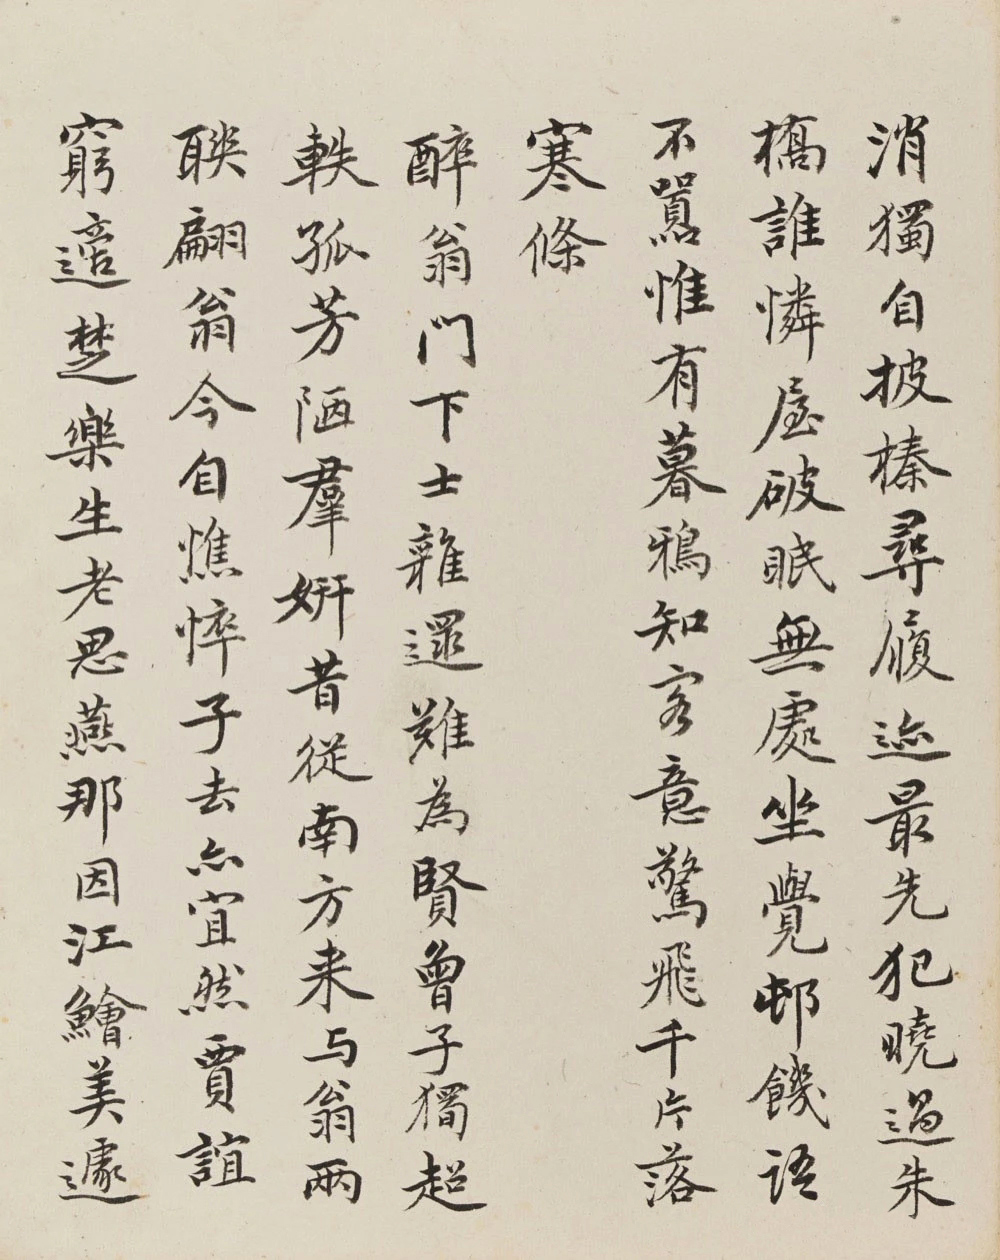 消獨自披榛尋履迹最先犯曉過朱
橋誰憐屋破眠無處坐覺邨饑語
不囂惟有暮鴉知客意驚飛千片落
寒條
醉翁門下士雜遝難為賢曾子獨超
軼孤芳陋羣妍昔從南方来与翁兩
聮翩翁今自憔悴子去亦宜然賈誼
窮適楚樂生老思燕那因江鱠美遽